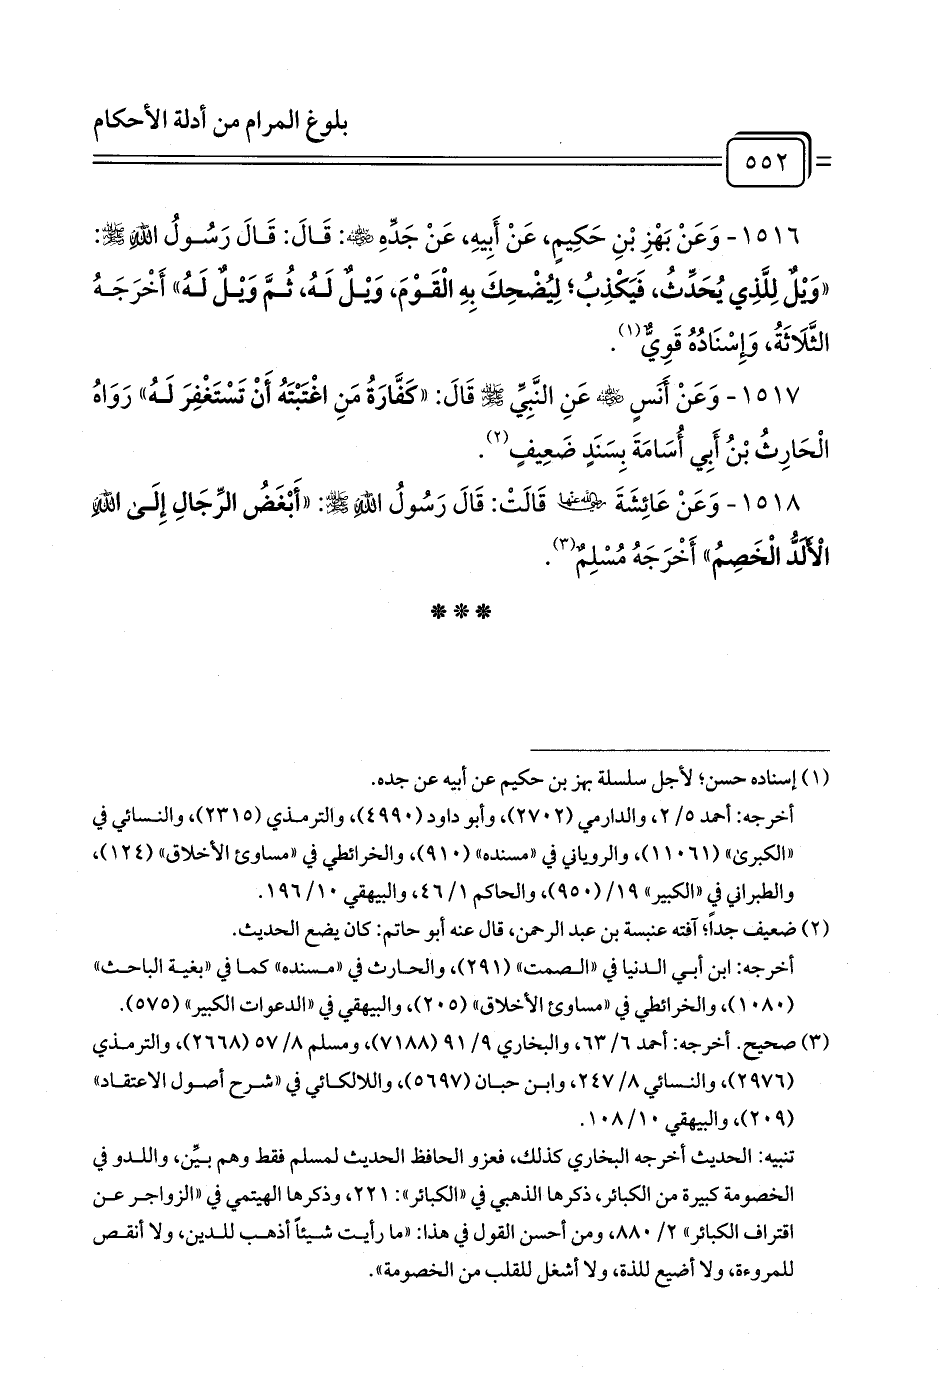 بلوغ المرام من أدلة الأحكام
٥٥٢
١٥١٦- وَعَنْ بَهْزِ بْنِ حَكِيمٍ، عَنْ أَبِيهِ، عَنْ جَدِّهِ ﵁: قَالَ: قَالَ رَسُولُ اللهِ ﷺ:
«وَيْلٌ لِلَّذِي يُحَدِّثُ، فَيَكْذِبُ؛ لِيُضْحِكَ بِهِ الْقَوْمَ، وَيْلٌ لَهُ، ثُمَّ وَيْلٌ لَهُ» أَخْرَجَهُ
الثَّلَاثَةُ، وَإِسْنَادُهُ قَوِيٌّ(١).
١٥١٧- وَعَنْ أَنَسٍ ﵁ عَنِ النَّبِيِّ ﷺ قَالَ: «كَفَّارَةُ مَنِ اغْتَبْتَهُ أَنْ تَسْتَغْفِرَ لَهُ» رَوَاهُ
الْحَارِثُ بْنُ أَبِي أُسَامَةَ بِسَنَدٍ ضَعِيفٍ(٢).
١٥١٨- وَعَنْ عَائِشَةَ ﵂ قَالَتْ: قَالَ رَسُولُ اللهِ ﷺ: «أَبْغَضُ الرِّجَالِ إِلَىٰ اللهِ
الْأَلَدُّ الْخَصِمُ» أَخْرَجَهُ مُسْلِمٌ(٣).
***
(١) إسناده حسن؛ لأجل سلسلة بهز بن حكيم عن أبيه عن جده.
أخرجه: أحمد ٥/ ٢، والدارمي (٢٧٠٢)، وأبو داود (٤٩٩٠)، والترمذي (٢٣١٥)، والنسائي في
«الكبرىٰ» (١١٠٦١)، والروياني في «مسنده» (٩١٠)، والخرائطي في «مساوئ الأخلاق» (١٢٤)،
والطبراني في «الكبير» ١٩/ (٩٥٠)، والحاكم ١/ ٤٦، والبيهقي ١٠/ ١٩٦.
(٢) ضعيف جداً؛ آفته عنبسة بن عبد الرحمن، قال عنه أبو حاتم: كان يضع الحديث.
أخرجه: ابن أبي الدنيا في «الصمت» (٢٩١)، والحارث في «مسنده» كما في «بغية الباحث»
(١٠٨٠)، والخرائطي في «مساوئ الأخلاق» (٢٠٥)، والبيهقي في «الدعوات الكبير» (٥٧٥).
(٣) صحيح. أخرجه: أحمد ٦/ ٦٣، والبخاري ٩/ ٩١ (٧١٨٨)، ومسلم ٨/ ٥٧ (٢٦٦٨)، والترمذي
(٢٩٧٦)، والنسائي ٨/ ٢٤٧، وابن حبان (٥٦٩٧)، واللالكائي في «شرح أصول الاعتقاد»
(٢٠٩)، والبيهقي ١٠/ ١٠٨.
تنبيه: الحديث أخرجه البخاري كذلك، فعزو الحافظ الحديث لمسلم فقط وهم بيِّن، واللدو في
الخصومة كبيرة من الكبائر، ذكرها الذهبي في «الكبائر»: ٢٢١، وذكرها الهيتمي في «الزواجر عن
اقتراف الكبائر» ٢/ ٨٨٠، ومن أحسن القول في هذا: «ما رأيت شيئاً أذهب للدين، ولا أنقص
للمروءة، ولا أضيع للذة، ولا أشغل للقلب من الخصومة».